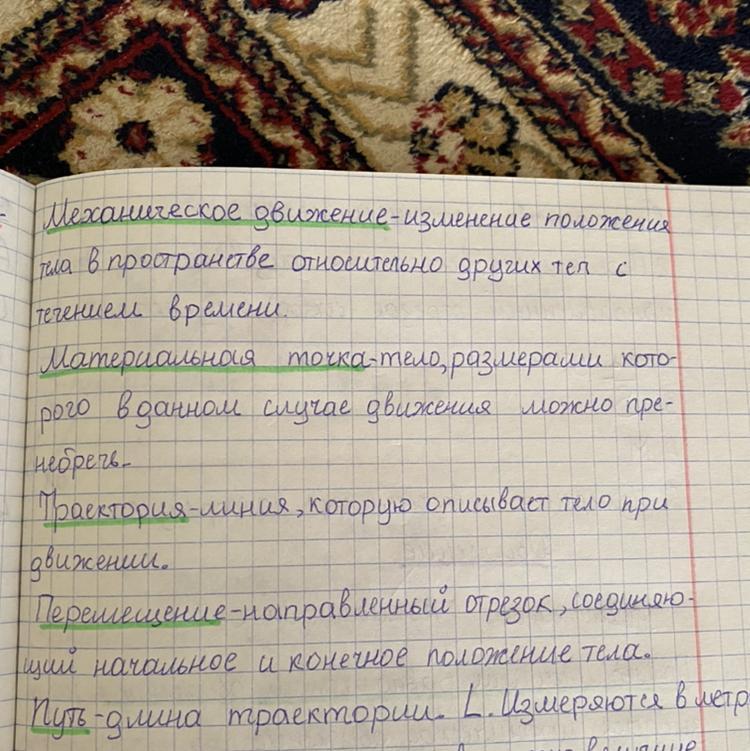 Механическое движение-изменение положения
тела в пространстве относительно других тел с
течением времени.
Материальная точка-тело, размерами кото-
рого в данном случае движения можно пре-
небречь.
Траектория-линия, которую описывает тело при
движении.
Перемещение-направленный отрезок, соединяю-
щий начальное и конечное положение тела.
Путь-длина траектории. L. Измеряются в метр